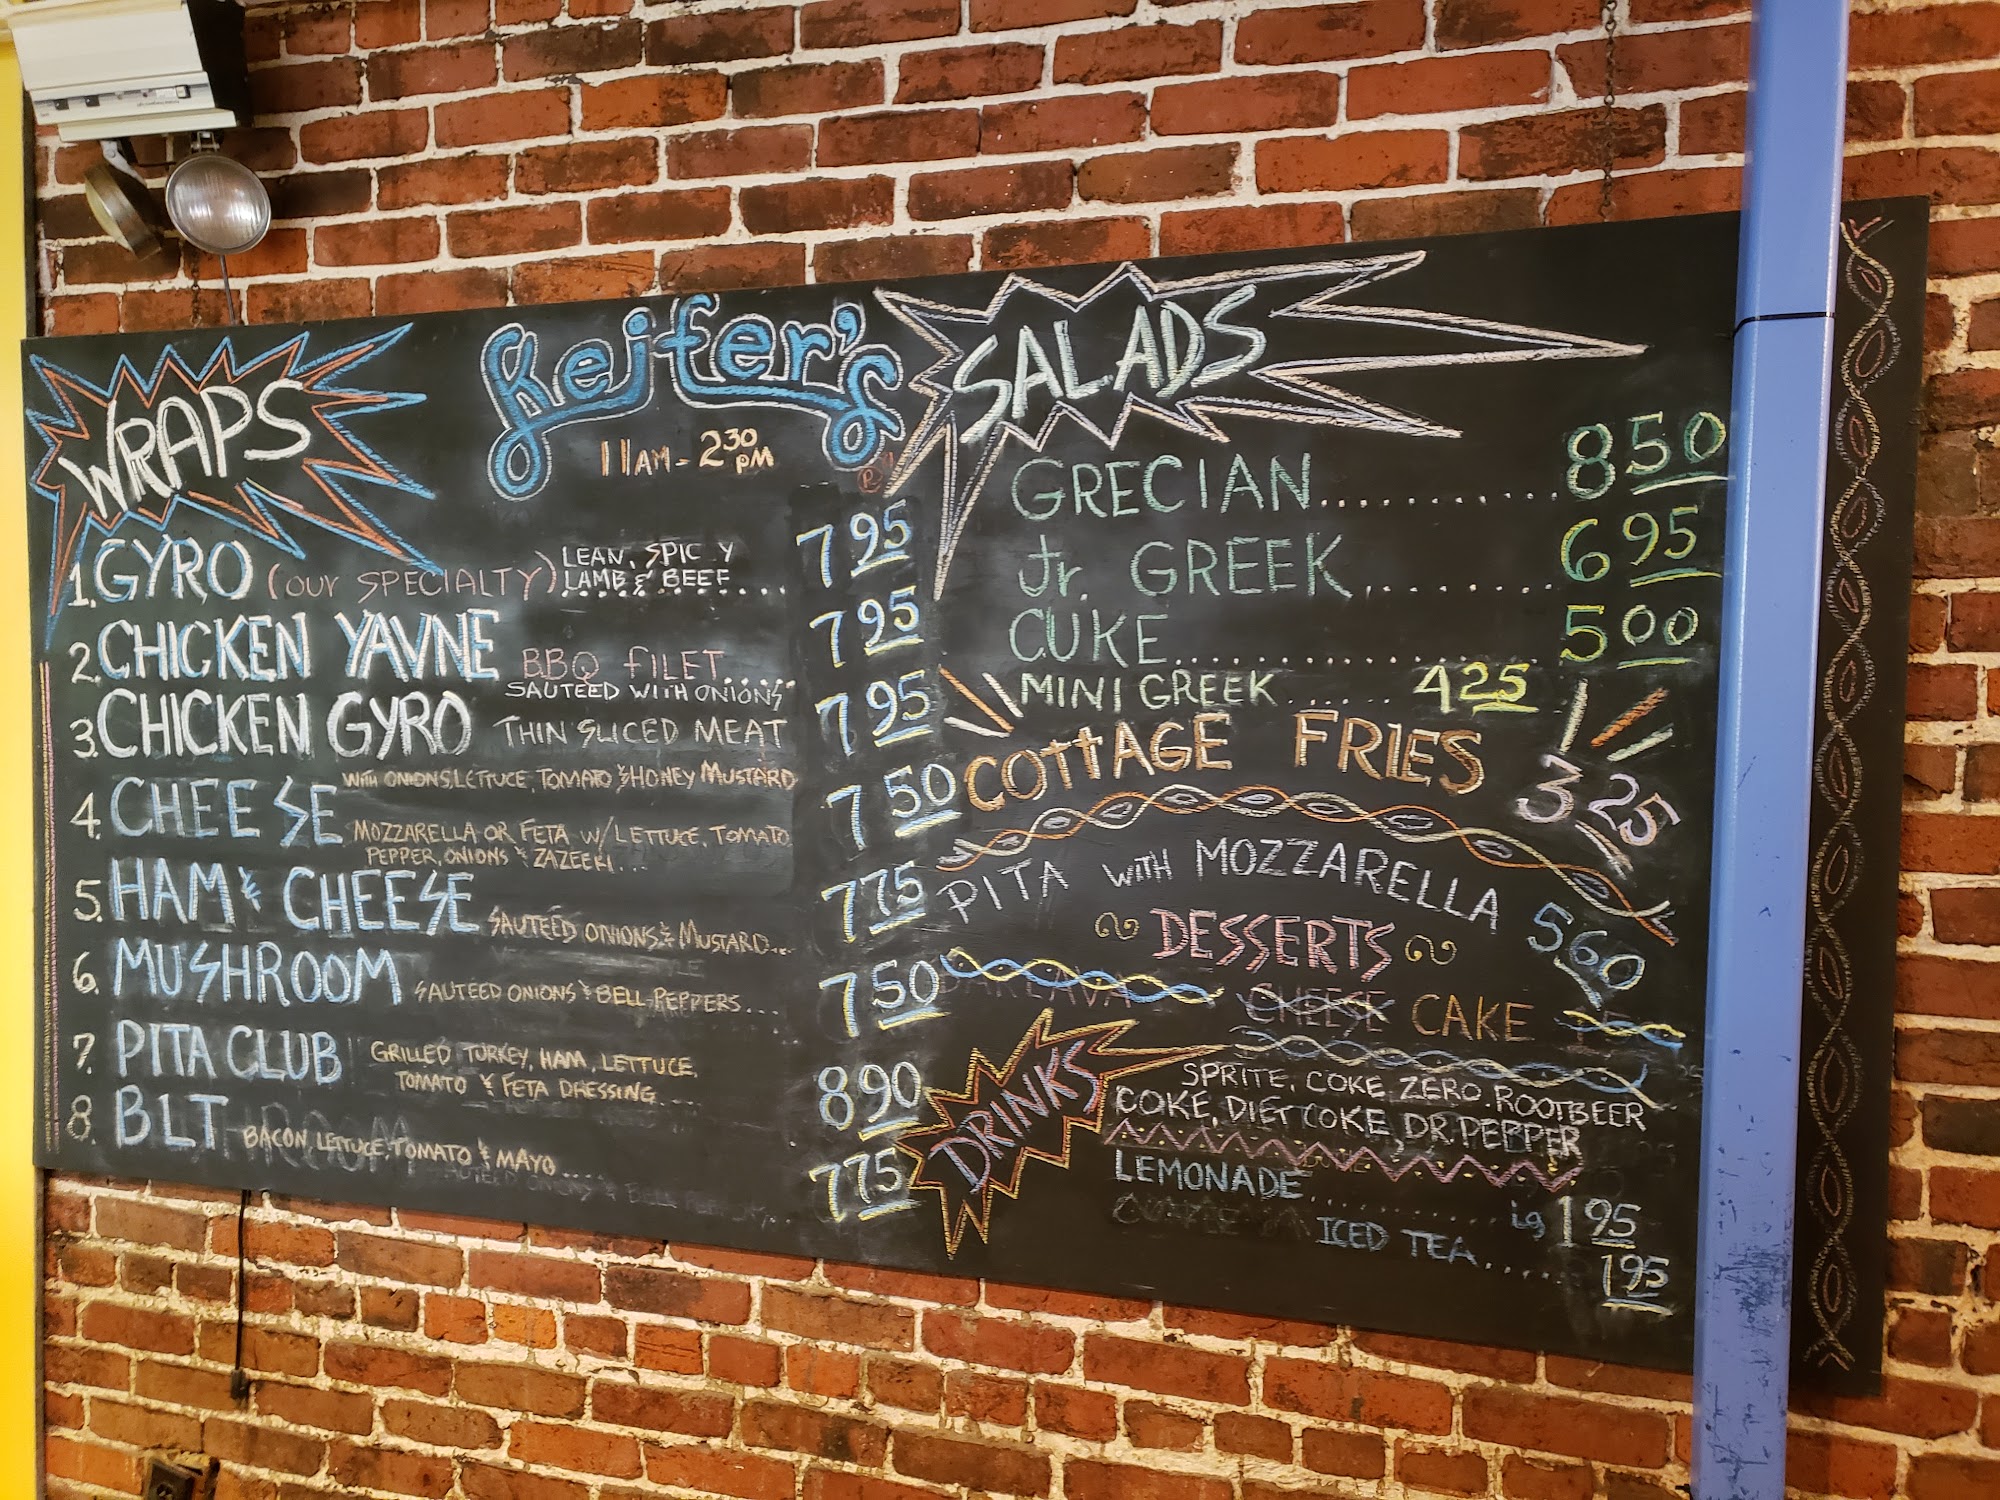 Keifer's
11AM - 2 30 PM
WRAPS
1. GYRO (OUR SPECIALTY) LEAN, SPICY
LAMB & BEEF.......... 7 95
2. CHICKEN YAVNE BBQ FILET...... 7 95
SAUTEED WITH ONIONS
3. CHICKEN GYRO THIN SLICED MEAT 7 95
WITH ONIONS, LETTUCE, TOMATO & HONEY MUSTARD
4. CHEESE MOZZARELLA OR FETA W/ LETTUCE, TOMATO 7 50
PEPPER, ONIONS & ZAZEEKI...
5. HAM & CHEESE SAUTEED ONIONS & MUSTARD... 7 75
6. MUSHROOM SAUTEED ONIONS & BELL-PEPPERS... 7 50
7. PITA CLUB GRILLED TURKEY, HAM, LETTUCE,
TOMATO & FETA DRESSING.... 8 90
8. BLT BACON, LETTUCE, TOMATO & MAYO..... 7 75
SALADS
GRECIAN............ 8 50
Jr. GREEK.......... 6 95
CUKE................ 5 00
MINI GREEK...... 4 25
COTTAGE FRIES 3 25
PITA WITH MOZZARELLA 5 60
DESSERTS
BAKLAVA CHEESE CAKE
DRINKS
SPRITE, COKE ZERO, ROOTBEER
COKE, DIET COKE, DR. PEPPER
LEMONADE............ lg 1 95
ICED TEA...... 1 95